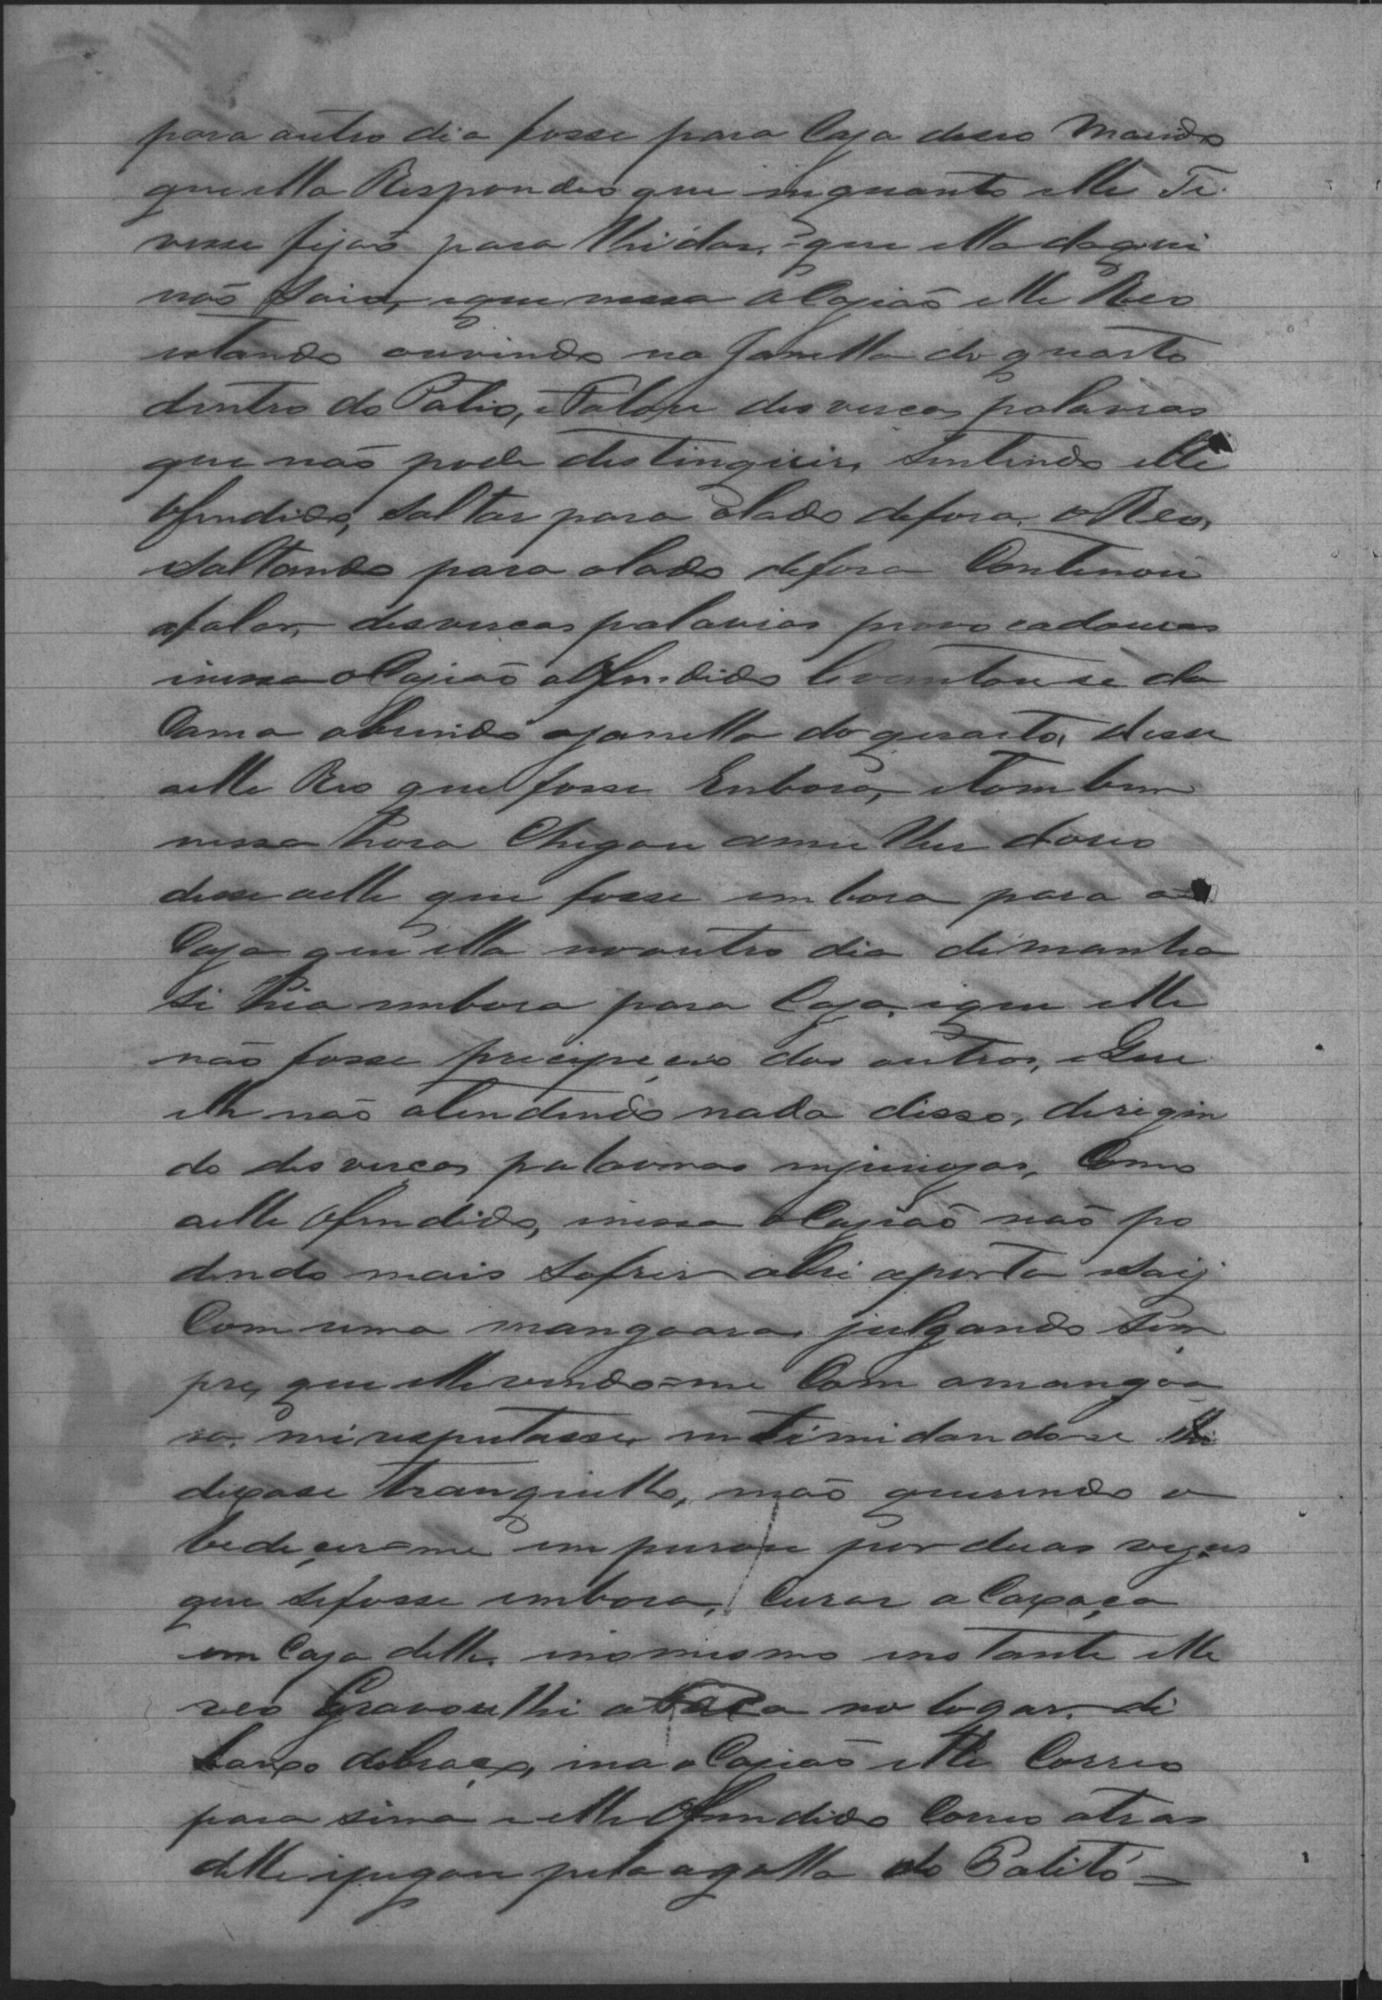 para outro dia fosse para Caza deseo Marido
que ella Respondeo que inquanto elle Ti-
vesse fijaõ para lhi dar, que ella daqui
não Saia, e que nessa ocaziaõ elle Reo
estando ouvindo na Janella do quarto
dentro do Patio, e Falou desvercas palavras
que naõ pode destinguir, Sintindo elle
Ofendido, saltar para olado defora, o Reo,
saltando para olado defora Continou
afalar, desvercas palavras provocadouras
inessa oCaziaõ oOfendido levantou se da
Cama abrindo ajanella do quarto, disse
aelle Reo que fosse Embora, e tambem
nessa hora Chegou amulher doreo
disse aelle que fosse embora para a
Caza que ella no outro dia di manha
si hia embora para Caza, ique elle
não fosse precipicio dos outros, e Que
elle naõ atendendo nada disso, derigin
do desvercas palavras injuriozas, Como
aelle Ofendido, inessa oCaziaõ naõ po
dendo mais Sofrer abri aporta e Saij
Com uma mangoara, julgando Sem
pre, que elle vendo-me Com amangoa
ra, mi respeitasse, intimidandose lhi
dixase tranquillo, não querendo o
bedeçer-me impurou por duas vezes
que sifosse embora, Curar a Caxaça
em Caza delle, inomesmo instante elle
reo Cravou lhi a Faca no logar, di
baxo dobraço, ina oCaziaõ elle Correo
para sima e elle Ofendido Correo atras
delle ipegou pela agolla do Palitó-